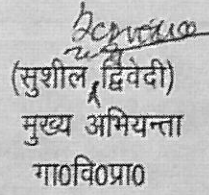 (सुशील द्विवेदी)
मुख्य अभियन्ता
गा0वि0प्रा0